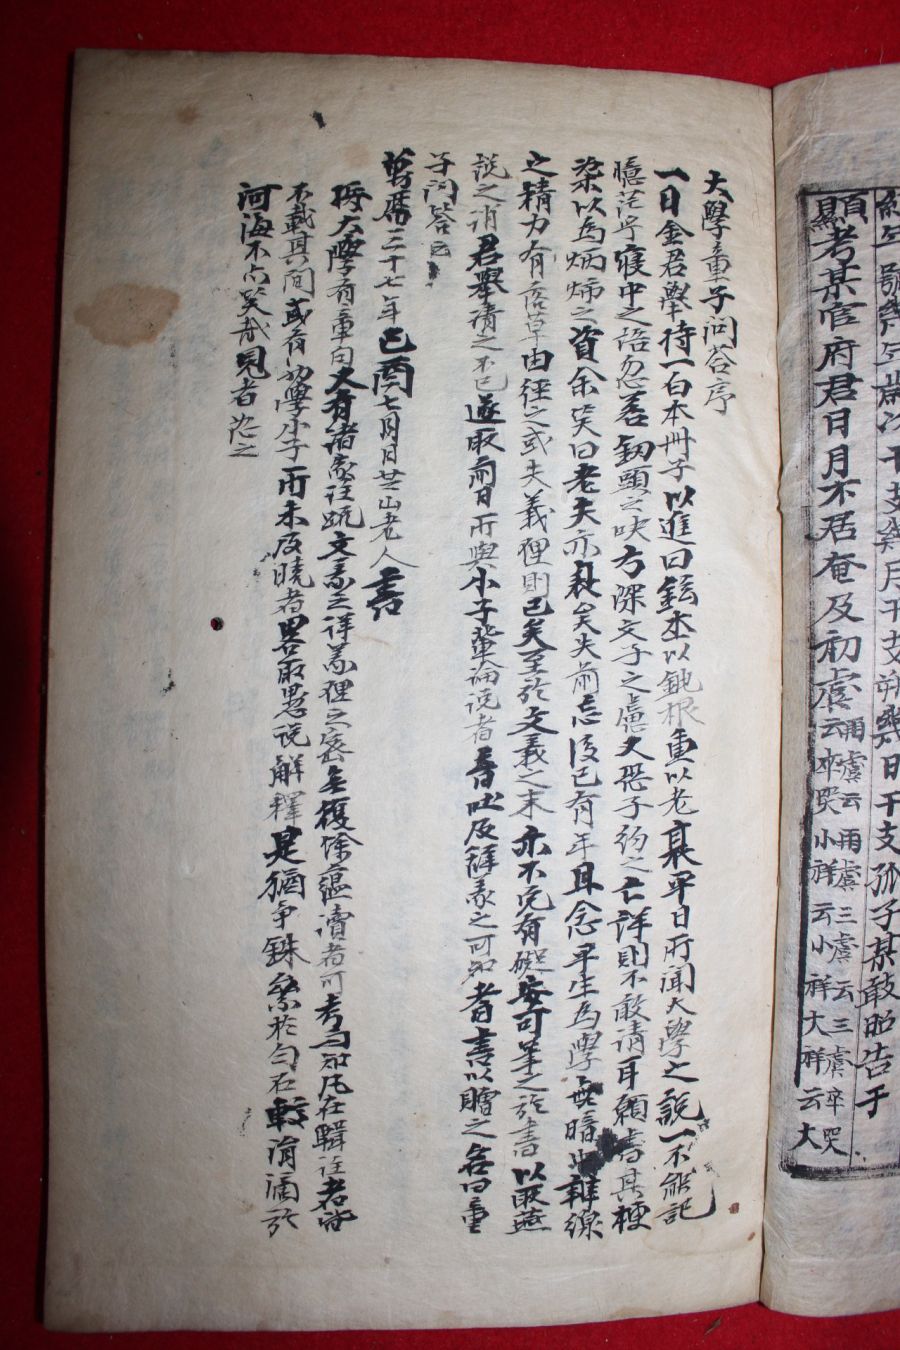 幾日干支孤子某敢昭告于
顯考某官府君日月不居奄及初虞云卒哭小祥云小祥大祥云大
再虞云再虞三虞云三虞卒哭
大學童子問答序
一日金君擧持一白本冊子以進曰鉉本以鈍根重以老衰平日所聞大學之說一不能記
憶茫乎寢中之語忽若劒頭之吷方深文子之慮大恐子約之亡詳則不敢請耳願書其梗
槩以為炳燭之資余笑曰老夫亦耗矣夫前忘後已有年且念平生為學無暗中雜線
之精力有落草由徑之或夫義理則已矣至於文義之末亦不免有礙安可筆之於書以取燕
說之誚君擧請之不已遂取前日所與小子輩論說者音吐及釋義之可知者書以贈之名曰童
子問答云
萬曆三十七年己酉七月日芝山老人書
按大學有章句大有諸家註疏文義之詳義理之密無復餘蘊讀者可考而知凡在輯註者皆
不載其間或有初學小子所未及曉者畧取愚說解釋是猶爭銖絫於勻石較涓滴於
河海不亦笑哉見者恕之